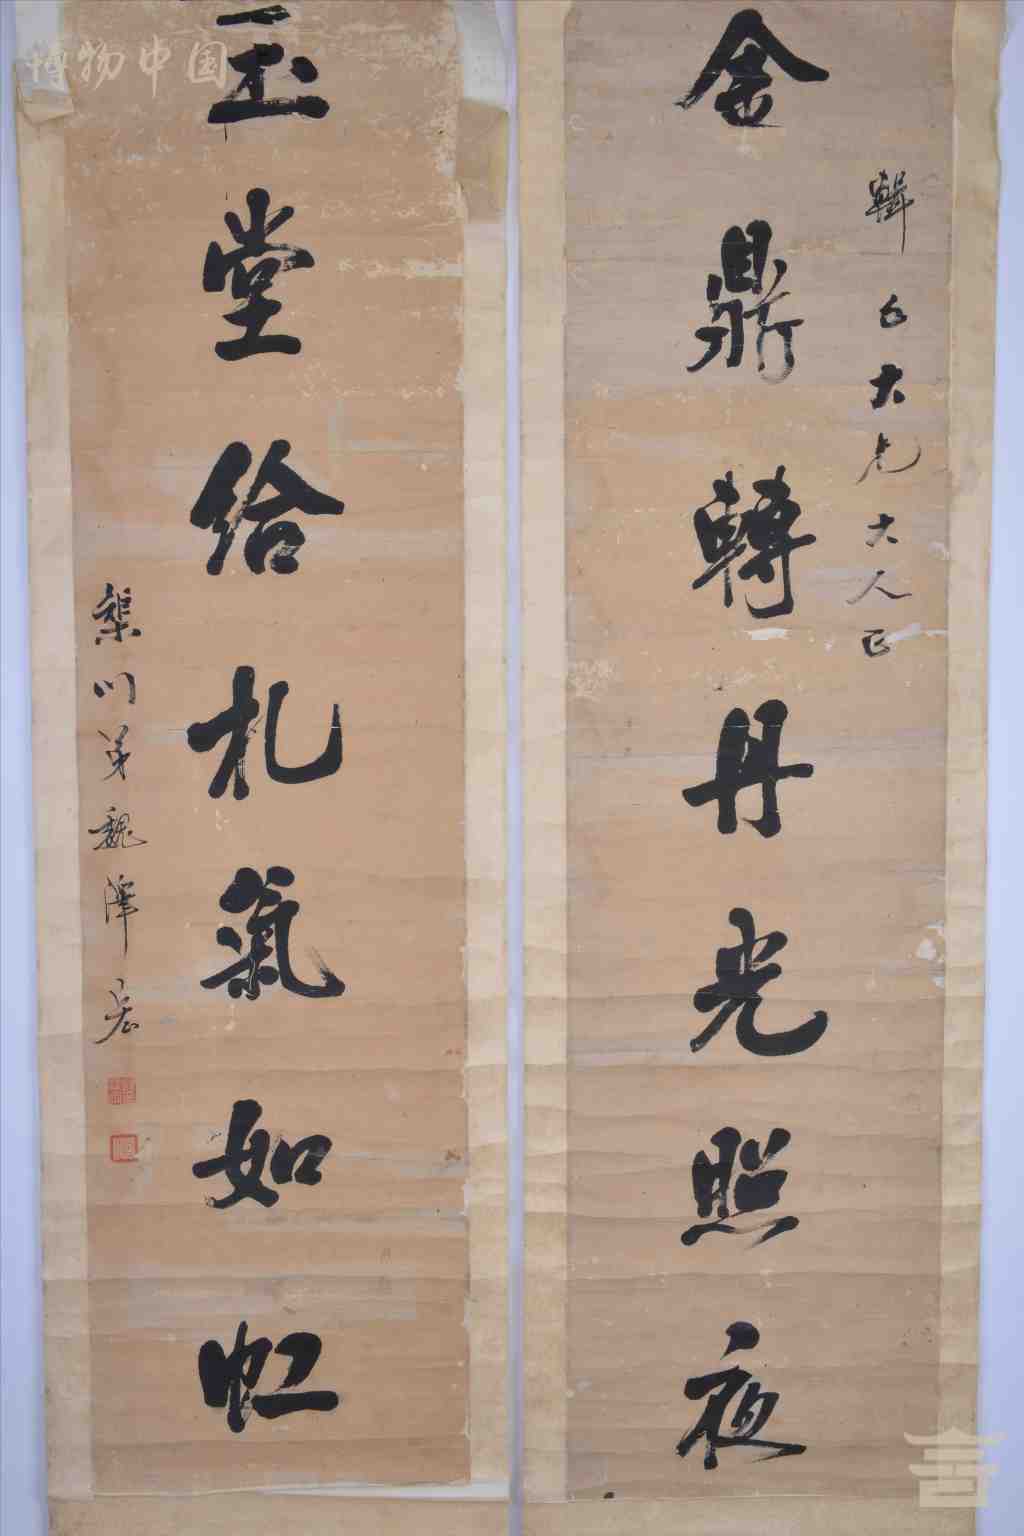 金鼎轉丹光照夜
輯五大兄大人正
玉堂給札氣如虹
渠川弟魏澤
博物中国